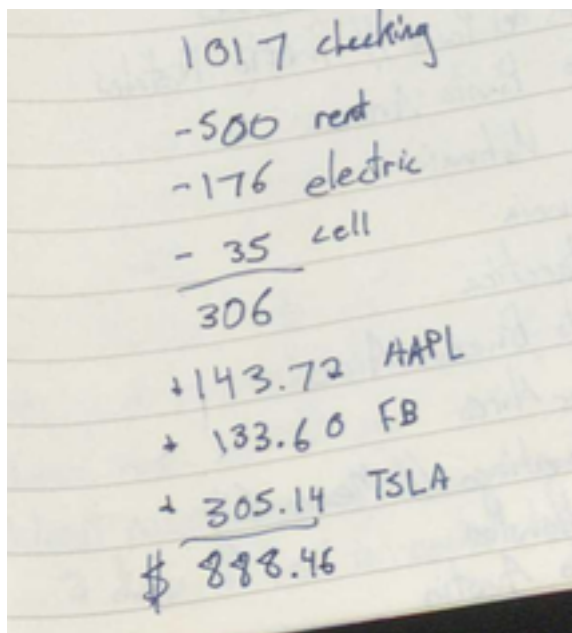 1017 checking
-500 rent
-176 electric
- 35 cell
306
+143.72 AAPL
+ 133.60 FB
+ 305.14 TSLA
$ 888.46